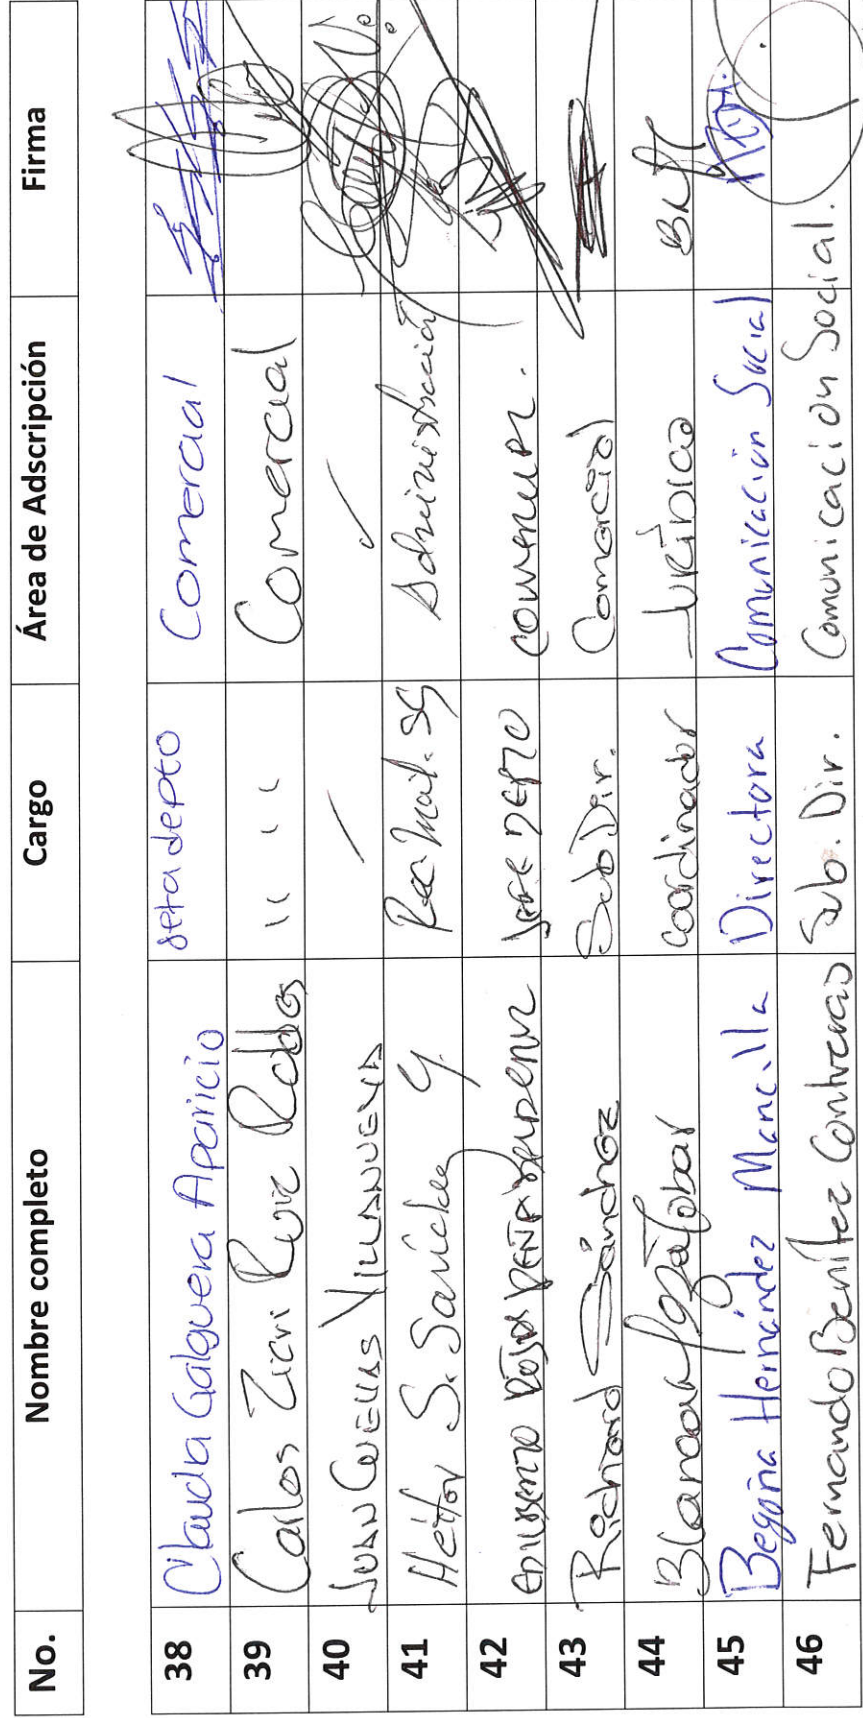 No. Nombre completo Cargo Área de Adscripción Firma
38 Claudia Galguera Aparicio Jefa depto Comercial
39 Carlos Ruiz Robles " " Comercial
40 JUAN CUEVAS VILLANUEVA
41 Héctor S. Sánchez G. Rec. Mat. SG Administración
42 EDILBERTO ROJAS JEFE DEPTO COMERCIAL.
43 Richard Sánchez Sub Dir. Comercial
44 Blanca Tobar Coordinador JURÍDICO
45 Begoña Hernández Mancilla Directora Comunicación Social
46 Fernando Benítez Contreras Sub. Dir. Comunicación Social.